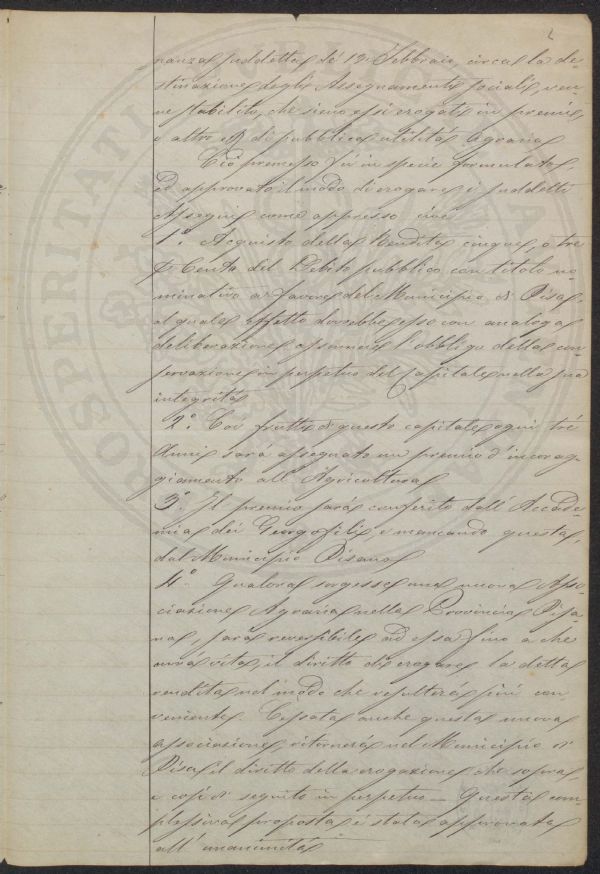 2
nanza suddetta de' 12 Febbraio, circa la de-
stinazione degli Assegnamenti sociali, ven-
ne stabilito, che siano essi erogati in premi,
o altro di pubblica utilità Agraria
Ciò premesso fù in specie formulato,
ed approvato il modo di erogare i suddetti
Assegni come appresso, cioè
1.° Acquisto della Rendita cinque, o tre
p Cento del Debito pubblico con titolo no-
minativo a favore del Municipio di Pisa,
al quale effetto dovrebbe esso con analoga
deliberazione assumere l'obbligo della con-
servazione in perpetuo del Capitale nella sua
integrità
2.° Coi frutti di questo capitale ogni tré
Anni sarà assegnato un premio d'incorag-
giamento all'Agricoltura
3.° Il premio sarà conferito dall'Accade-
mia dei Georgofili, e mancando questa,
dal Municipio Pisano
4.° Qualora sorgesse una nuova Asso-
ciazione Agraria nella Provincia Pisa-
na, sarà reversibile ad essa fino a che
avrà vita, il diritto di erogare la detta
rendita nel modo che resulterà più con-
veniente. Cessata anche questa nuova
associazione, ritornerà nel Municipio di
Pisa il diritto della erogazione che sopra,
e così di seguito in perpetuo — Questa com-
plessiva proposta è stata approvata
all'unanimità
PROSPERITATI PUBLICAE